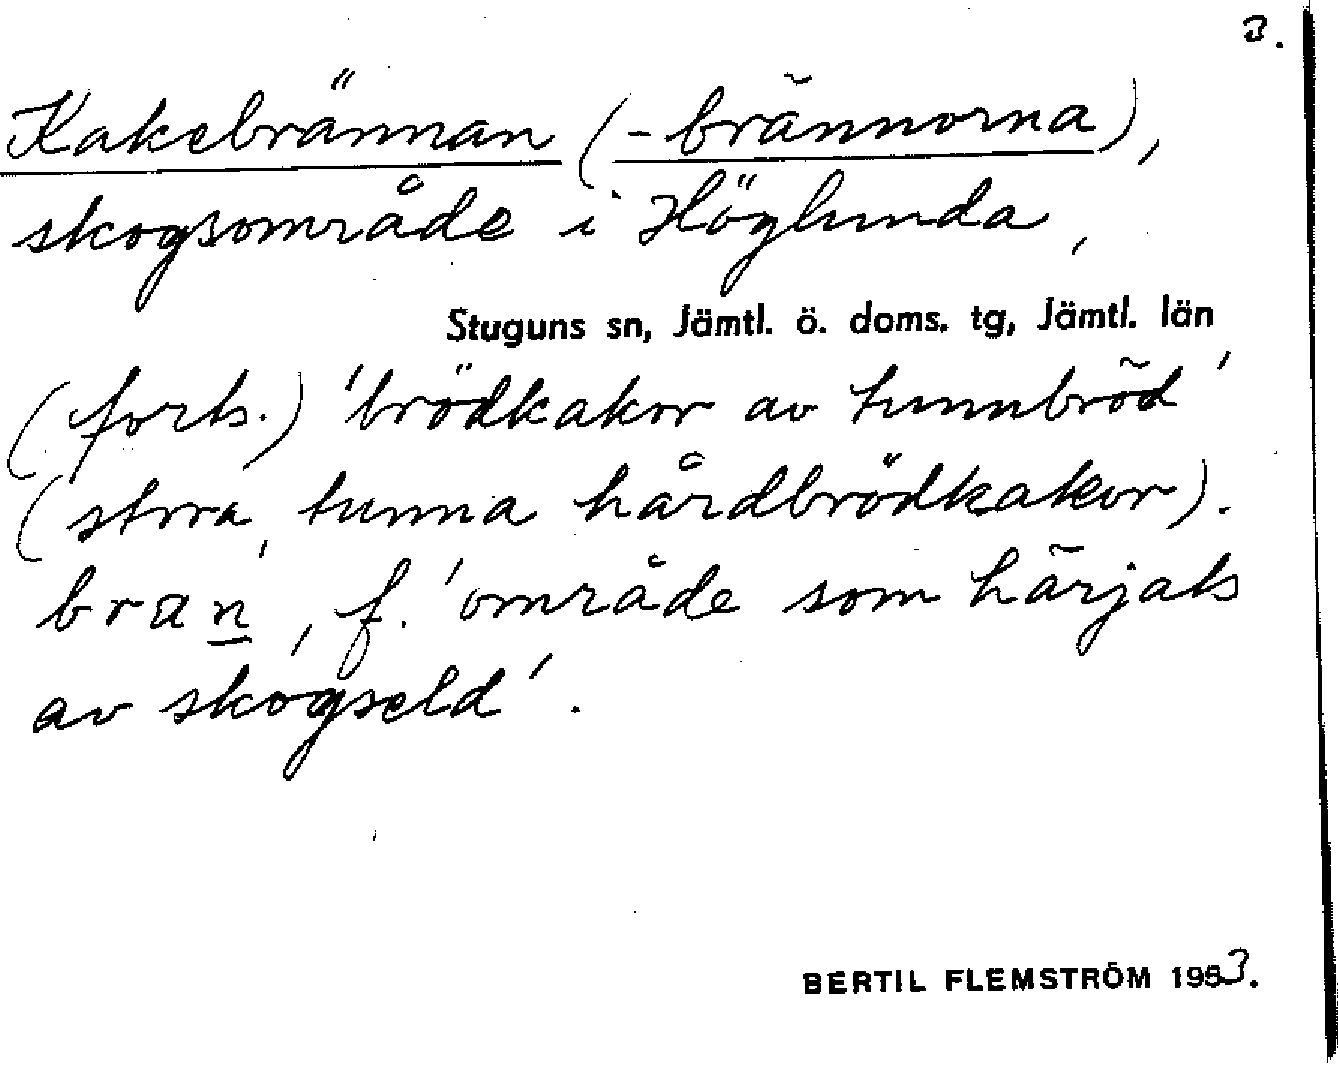 3.
Kakebrännan (-brännorna),
skogsområde i Höglunda,
Stuguns sn, Jämtl. ö. doms. tg, Jämtl. län
(forts.) 'brödkakor av tunnbröd'
(stora, tunna hårdbrödkakor).
bran, f. 'område som härjats
av skogseld'.
BERTIL FLEMSTRÖM 1983.